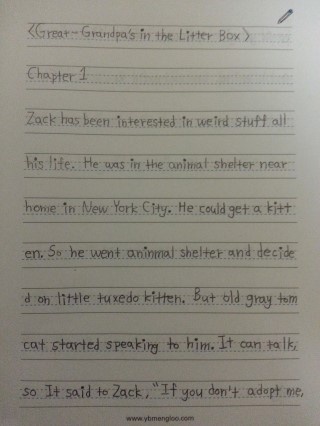 <Great-Grandpa's in the Litter Box>
Chapter 1
Zack has been interested in weird stuff all
his life. He was in the animal shelter near
home in New York City. He could get a kitt
en. So he went aninmal shelter and decide
d on little tuxedo kitten. But old gray tom
cat started speaking to him. It can talk,
so It said to Zack, "If you don't adopt me,
www.ybmengloo.com